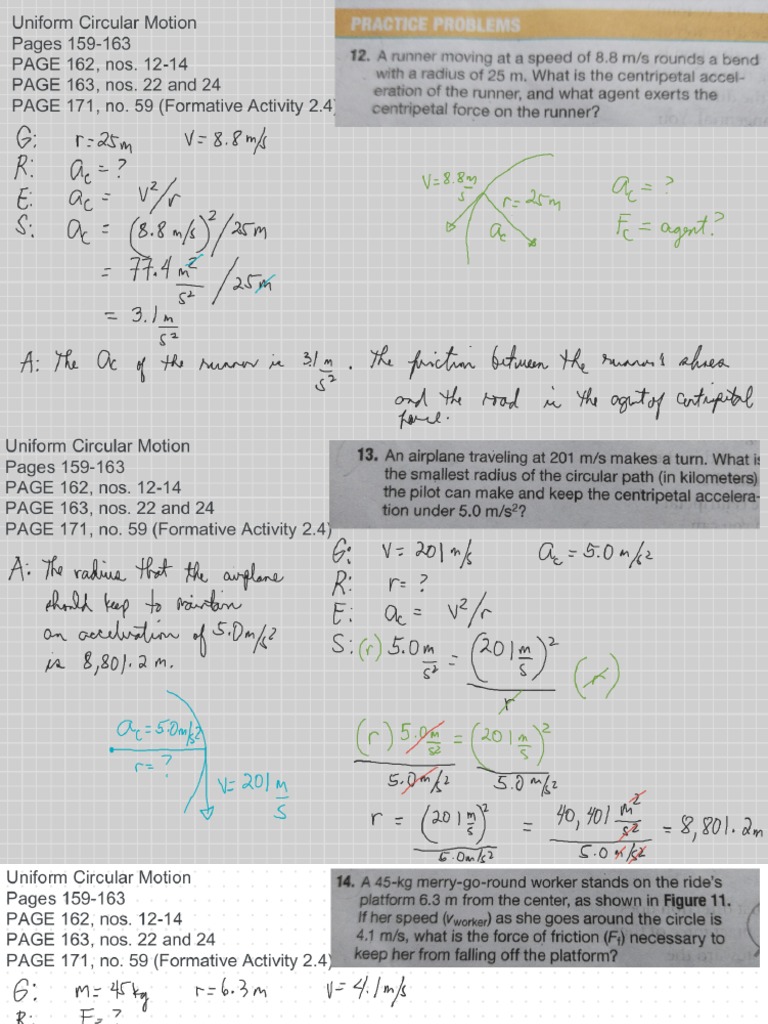 Uniform Circular Motion
Pages 159-163
PAGE 162, nos. 12-14
PAGE 163, nos. 22 and 24
PAGE 171, no. 59 (Formative Activity 2.4)
PRACTICE PROBLEMS
12. A runner moving at a speed of 8.8 m/s rounds a bend
with a radius of 25 m. What is the centripetal accel-
eration of the runner, and what agent exerts the
centripetal force on the runner?
G: r = 25m V = 8.8 m/s
R: ac = ?
E: ac = V²/r
S: ac = (8.8 m/s)² / 25m
= 77.4 m²/s² / 25m
= 3.1 m/s²
V = 8.8 m/s
r = 25m
ac
ac = ?
Fc = agent?
A: The ac of the runner is 3.1 m/s². The friction between the runner's shoes
and the road is the agent of centripetal
force.
Uniform Circular Motion
Pages 159-163
PAGE 162, nos. 12-14
PAGE 163, nos. 22 and 24
PAGE 171, no. 59 (Formative Activity 2.4)
13. An airplane traveling at 201 m/s makes a turn. What is
the smallest radius of the circular path (in kilometers)
the pilot can make and keep the centripetal accelera-
tion under 5.0 m/s²?
A: The radius that the airplane
should keep to maintain
an acceleration of 5.0 m/s²
is 8,801.2 m.
ac = 5.0 m/s²
r = ?
V = 201 m/s
G: V = 201 m/s ac = 5.0 m/s²
R: r = ?
E: ac = V²/r
S: (r) 5.0 m/s² = (201 m/s)² / r (r)
(r) 5.0 m/s² / 5.0 m/s² = (201 m/s)² / 5.0 m/s²
r = (201 m/s)² / 5.0 m/s² = 40,401 m²/s² / 5.0 m/s² = 8,801.2 m
Uniform Circular Motion
Pages 159-163
PAGE 162, nos. 12-14
PAGE 163, nos. 22 and 24
PAGE 171, no. 59 (Formative Activity 2.4)
14. A 45-kg merry-go-round worker stands on the ride's
platform 6.3 m from the center, as shown in Figure 11.
If her speed (vworker) as she goes around the circle is
4.1 m/s, what is the force of friction (Ff) necessary to
keep her from falling off the platform?
G: m = 45 kg r = 6.3 m V = 4.1 m/s
R: F = ?